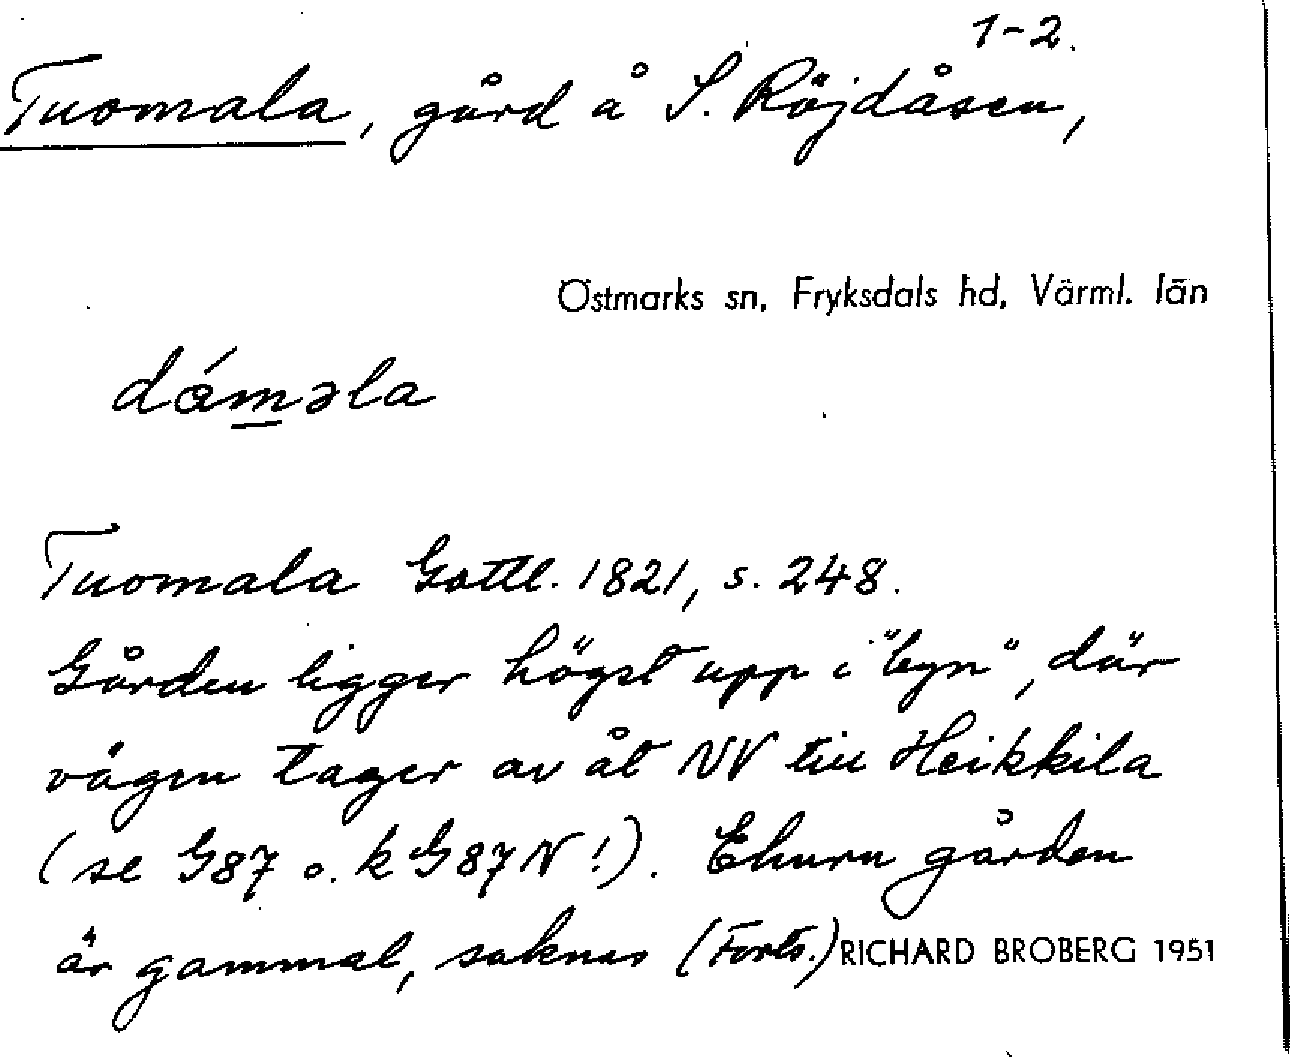 1-2.
Tuomala, gård å S. Röjdåsen,
Östmarks sn, Fryksdals hd, Värml. län
dǻməla
Tuomala Gottl. 1821, s. 248.
Gården ligger högst upp i "byn", där
vägen tager av åt NV till Heikkila
(se G87 o. k G87N!). Ehuru gården
är gammal, saknas (Forts.) RICHARD BROBERG 1951